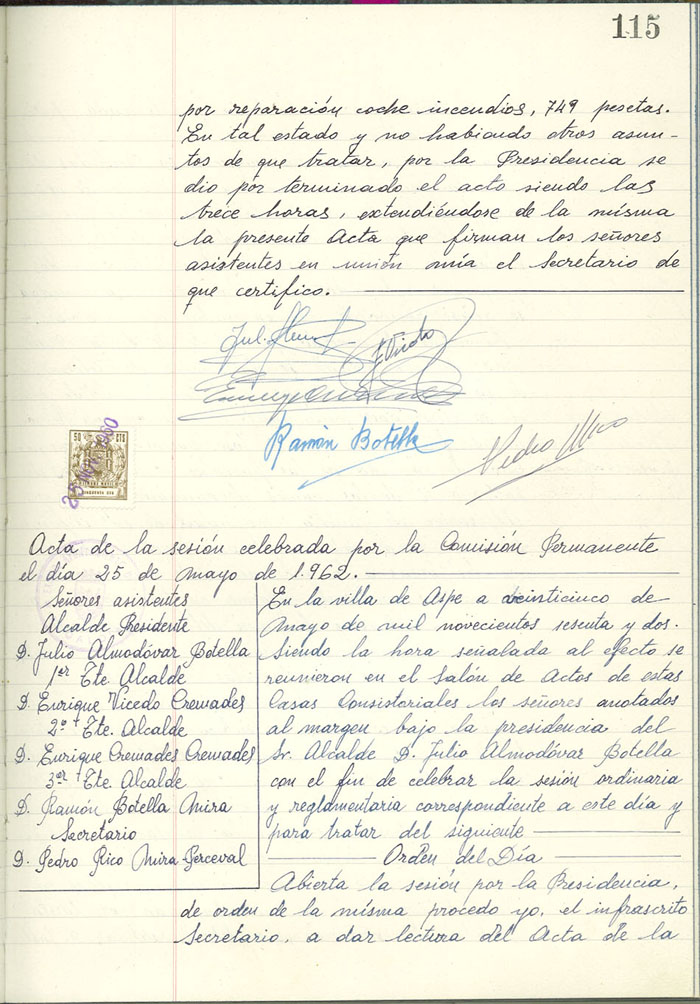 115
por reparación coche incendios, 749 pesetas.
En tal estado y no habiendo otros asun-
tos de que tratar, por la Presidencia se
dio por terminado el acto siendo las
trece horas, extendiéndose de la misma
la presente Acta que firman los señores
asistentes en unión mía el Secretario de
que certifico.
Ramón Botella
Pedro Rico
50 CTS
Acta de la sesión celebrada por la Comisión Permanente
el día 25 de mayo de 1.962.
Señores asistentes
Alcalde Presidente
D. Julio Almodóvar Botella
1er Tte. Alcalde
D. Enrique Vicedo Cremades
2º Tte. Alcalde
D. Enrique Cremades Cremades
3er Tte. Alcalde
D. Ramón Botella Mira
Secretario
D. Pedro Rico Mira-Perceval
En la villa de Aspe a veinticinco de
mayo de mil novecientos sesenta y dos.
Siendo la hora señalada al efecto se
reunieron en el Salón de Actos de estas
Casas Consistoriales los señores anotados
al margen bajo la presidencia del
Sr. Alcalde D. Julio Almodóvar Botella
con el fin de celebrar la sesión ordinaria
y reglamentaria correspondiente a este día y
para tratar del siguiente
Orden del Día
Abierta la sesión por la Presidencia,
de orden de la misma procedo yo, el infrascrito
Secretario, a dar lectura del Acta de la